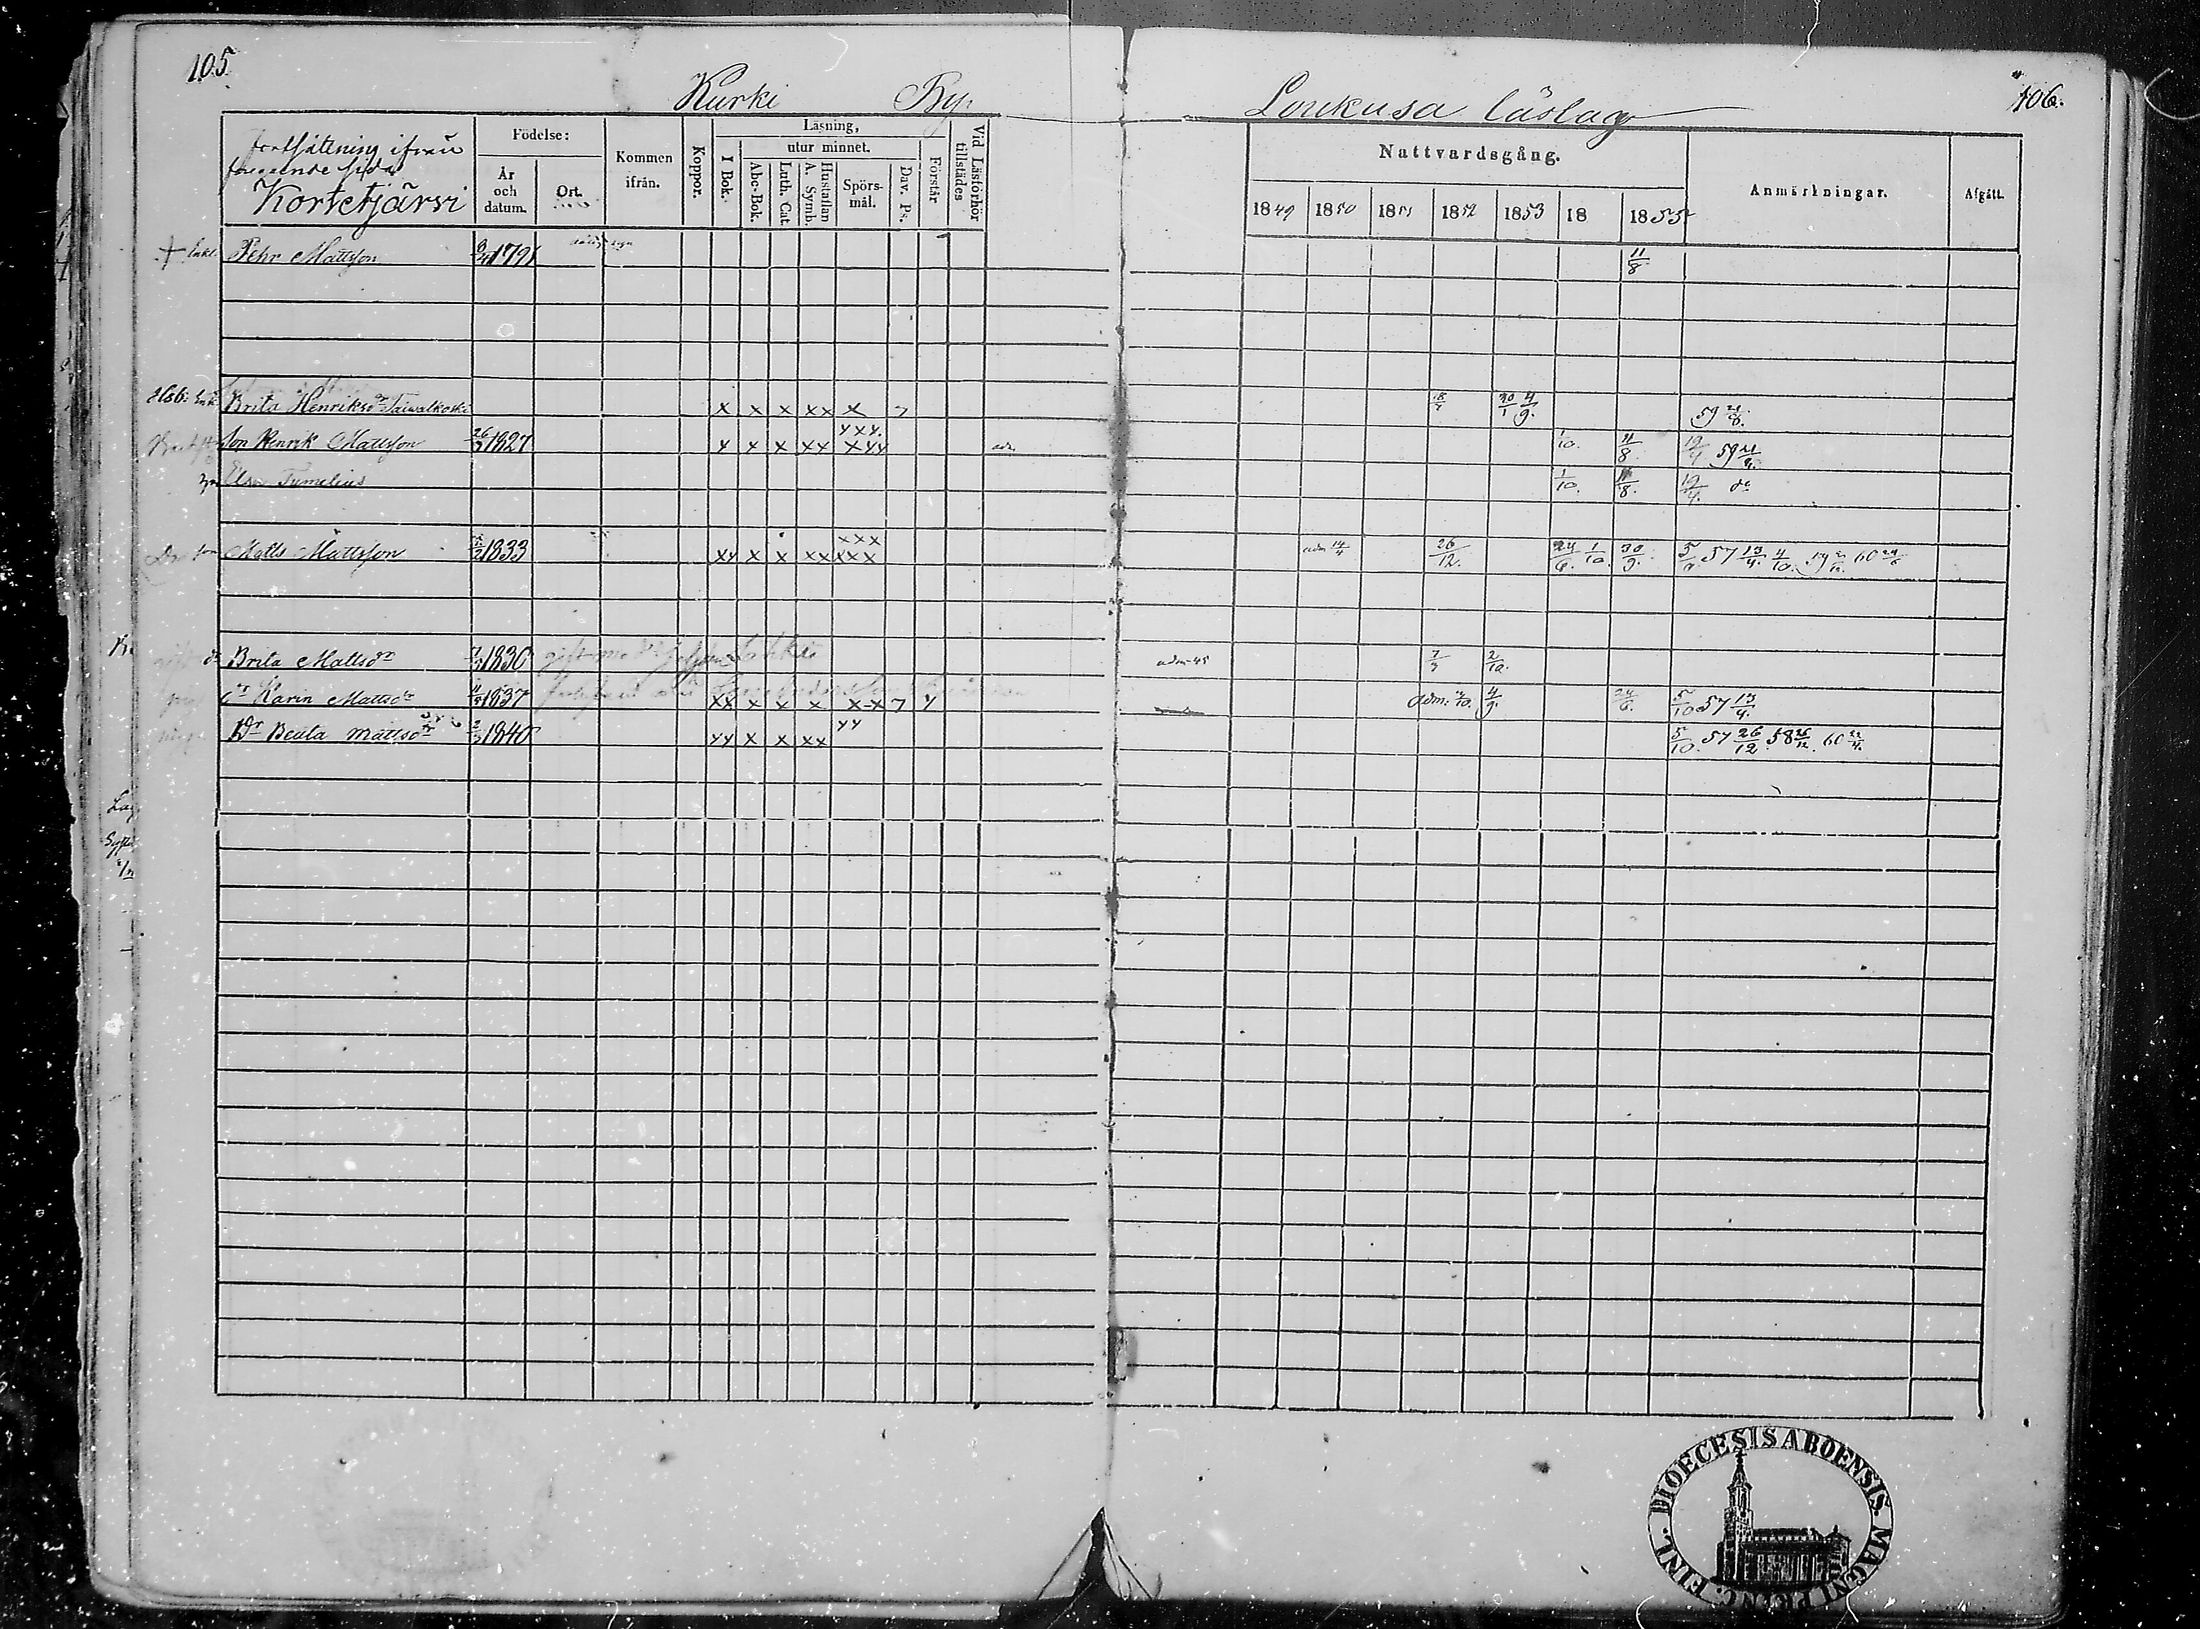 105.
Kurki By.
Loukusa läslag
106.
fortsättning ifrån
föregående sida
Kortetjärvi
Födelse:
År och datum.
Ort.
Kommen ifrån.
Koppor.
Läsning,
I Bok.
utur minnet.
Abc-Bok.
Luth. Cat.
Hustaflan A. Symb.
Spörs-mål.
Dav. Ps.
Förstår
Vid Läsförhör tillstädes
Nattvardsgång.
1849 1850 1851 1852 1853 18 1855
Anmärkningar.
Afgått.
+ Enkl. Pehr Mattsson 1791 11/8
Enk. Brita Henriksdr Taiwalkoski x x x xx x 30/1 4/9. 59
Son Henrik Mattsson 26/3 1827 x x x xx xyy 10. 11/8 19/4 59
Elsa Tumelius 1/10. 11/8. 19/4. do
son Matts Mattsson 1833 xx x x xx xxx adm 14/4 26/12. 24/6. 1/10. 30/9. 57 13/4. 4/10. 60
Brita Mattsdr 1830 gift med adm 45 2/10.
Karin Mattsdr 1837 xx x x x x-x 7 y adm: 4/9. 24/6. 5/10 57 13/4.
Dr Beata Mattsdr 2/3 1840 yy x x xx yy 5/10. 57 26/12. 58 26/12. 60
DIOECESIS ABOENSIS. MAGNI PRINC. FINL.